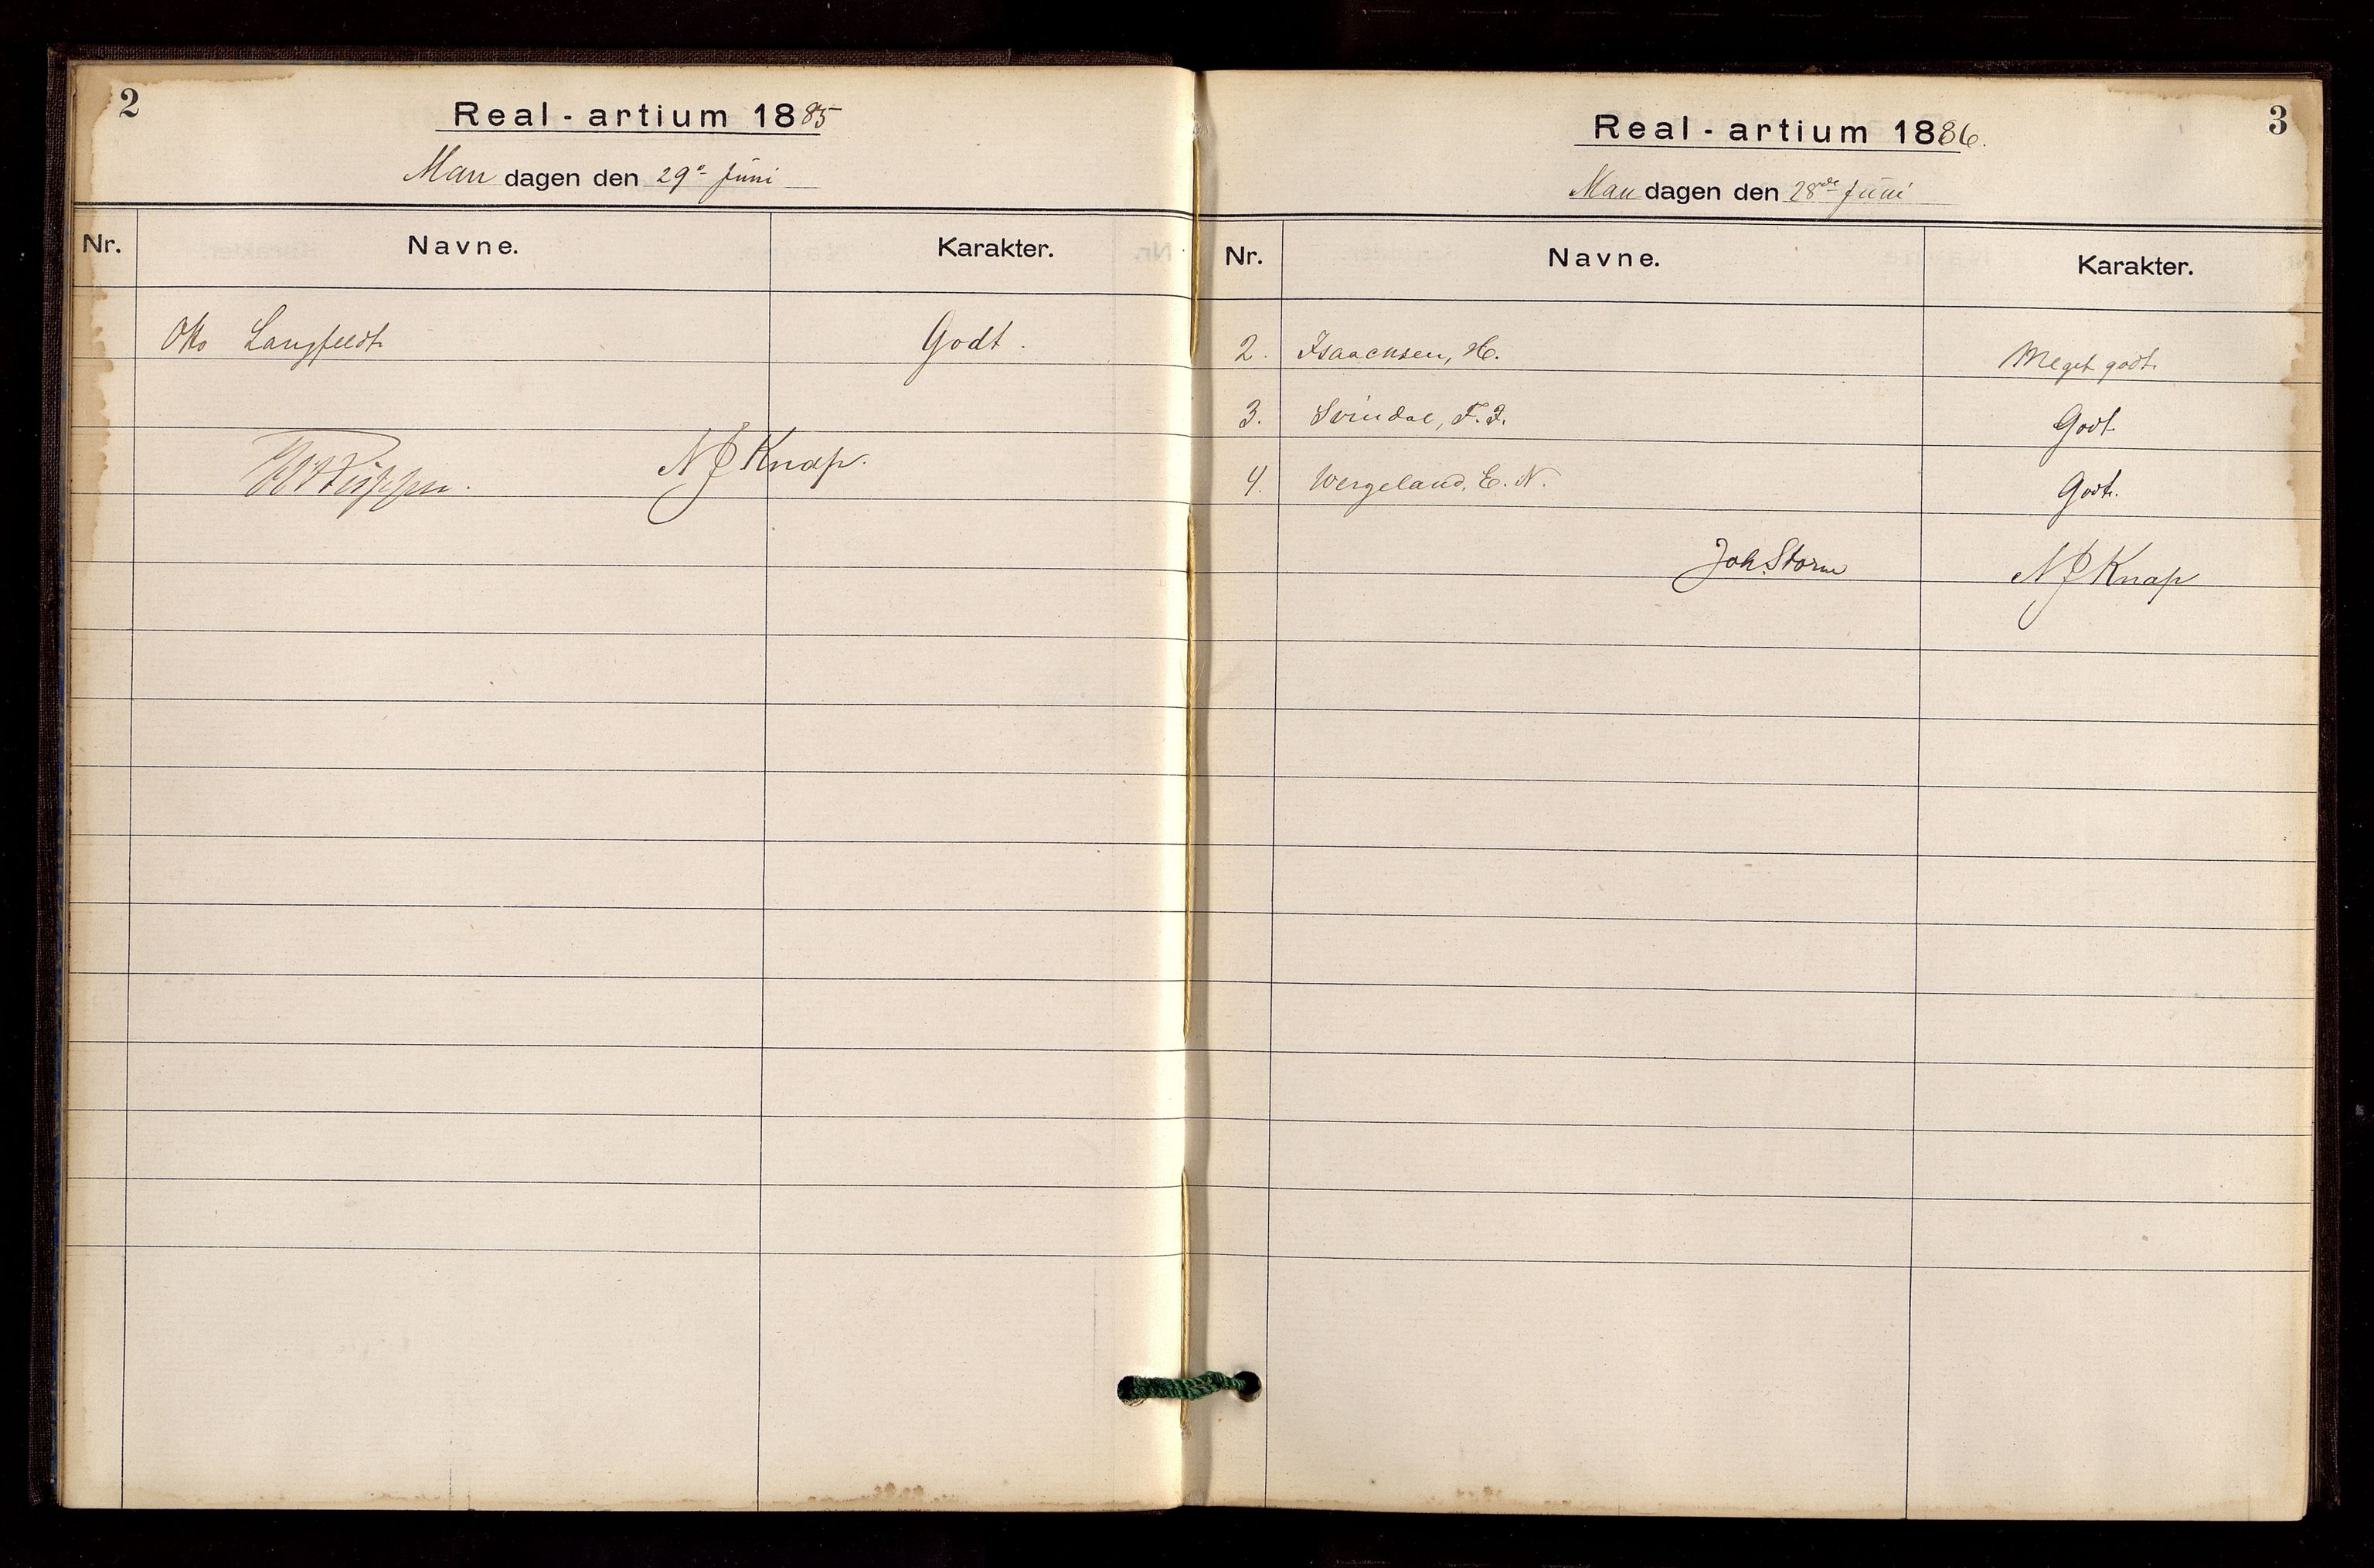 2
Real-artium 1885
Mandagen den 29de Juni
Nr. Navne. Karakter.
Otto Langfeldt Godt.
N J Knap.
3
Real-artium 1886.
Mandagen den 28de Juni
Nr. Navne. Karakter.
2. Isaachsen, H. Meget godt.
3. Svindal, F. F. Godt
4. Wergeland, E. N. Godt.
Joh. Storm N J Knap